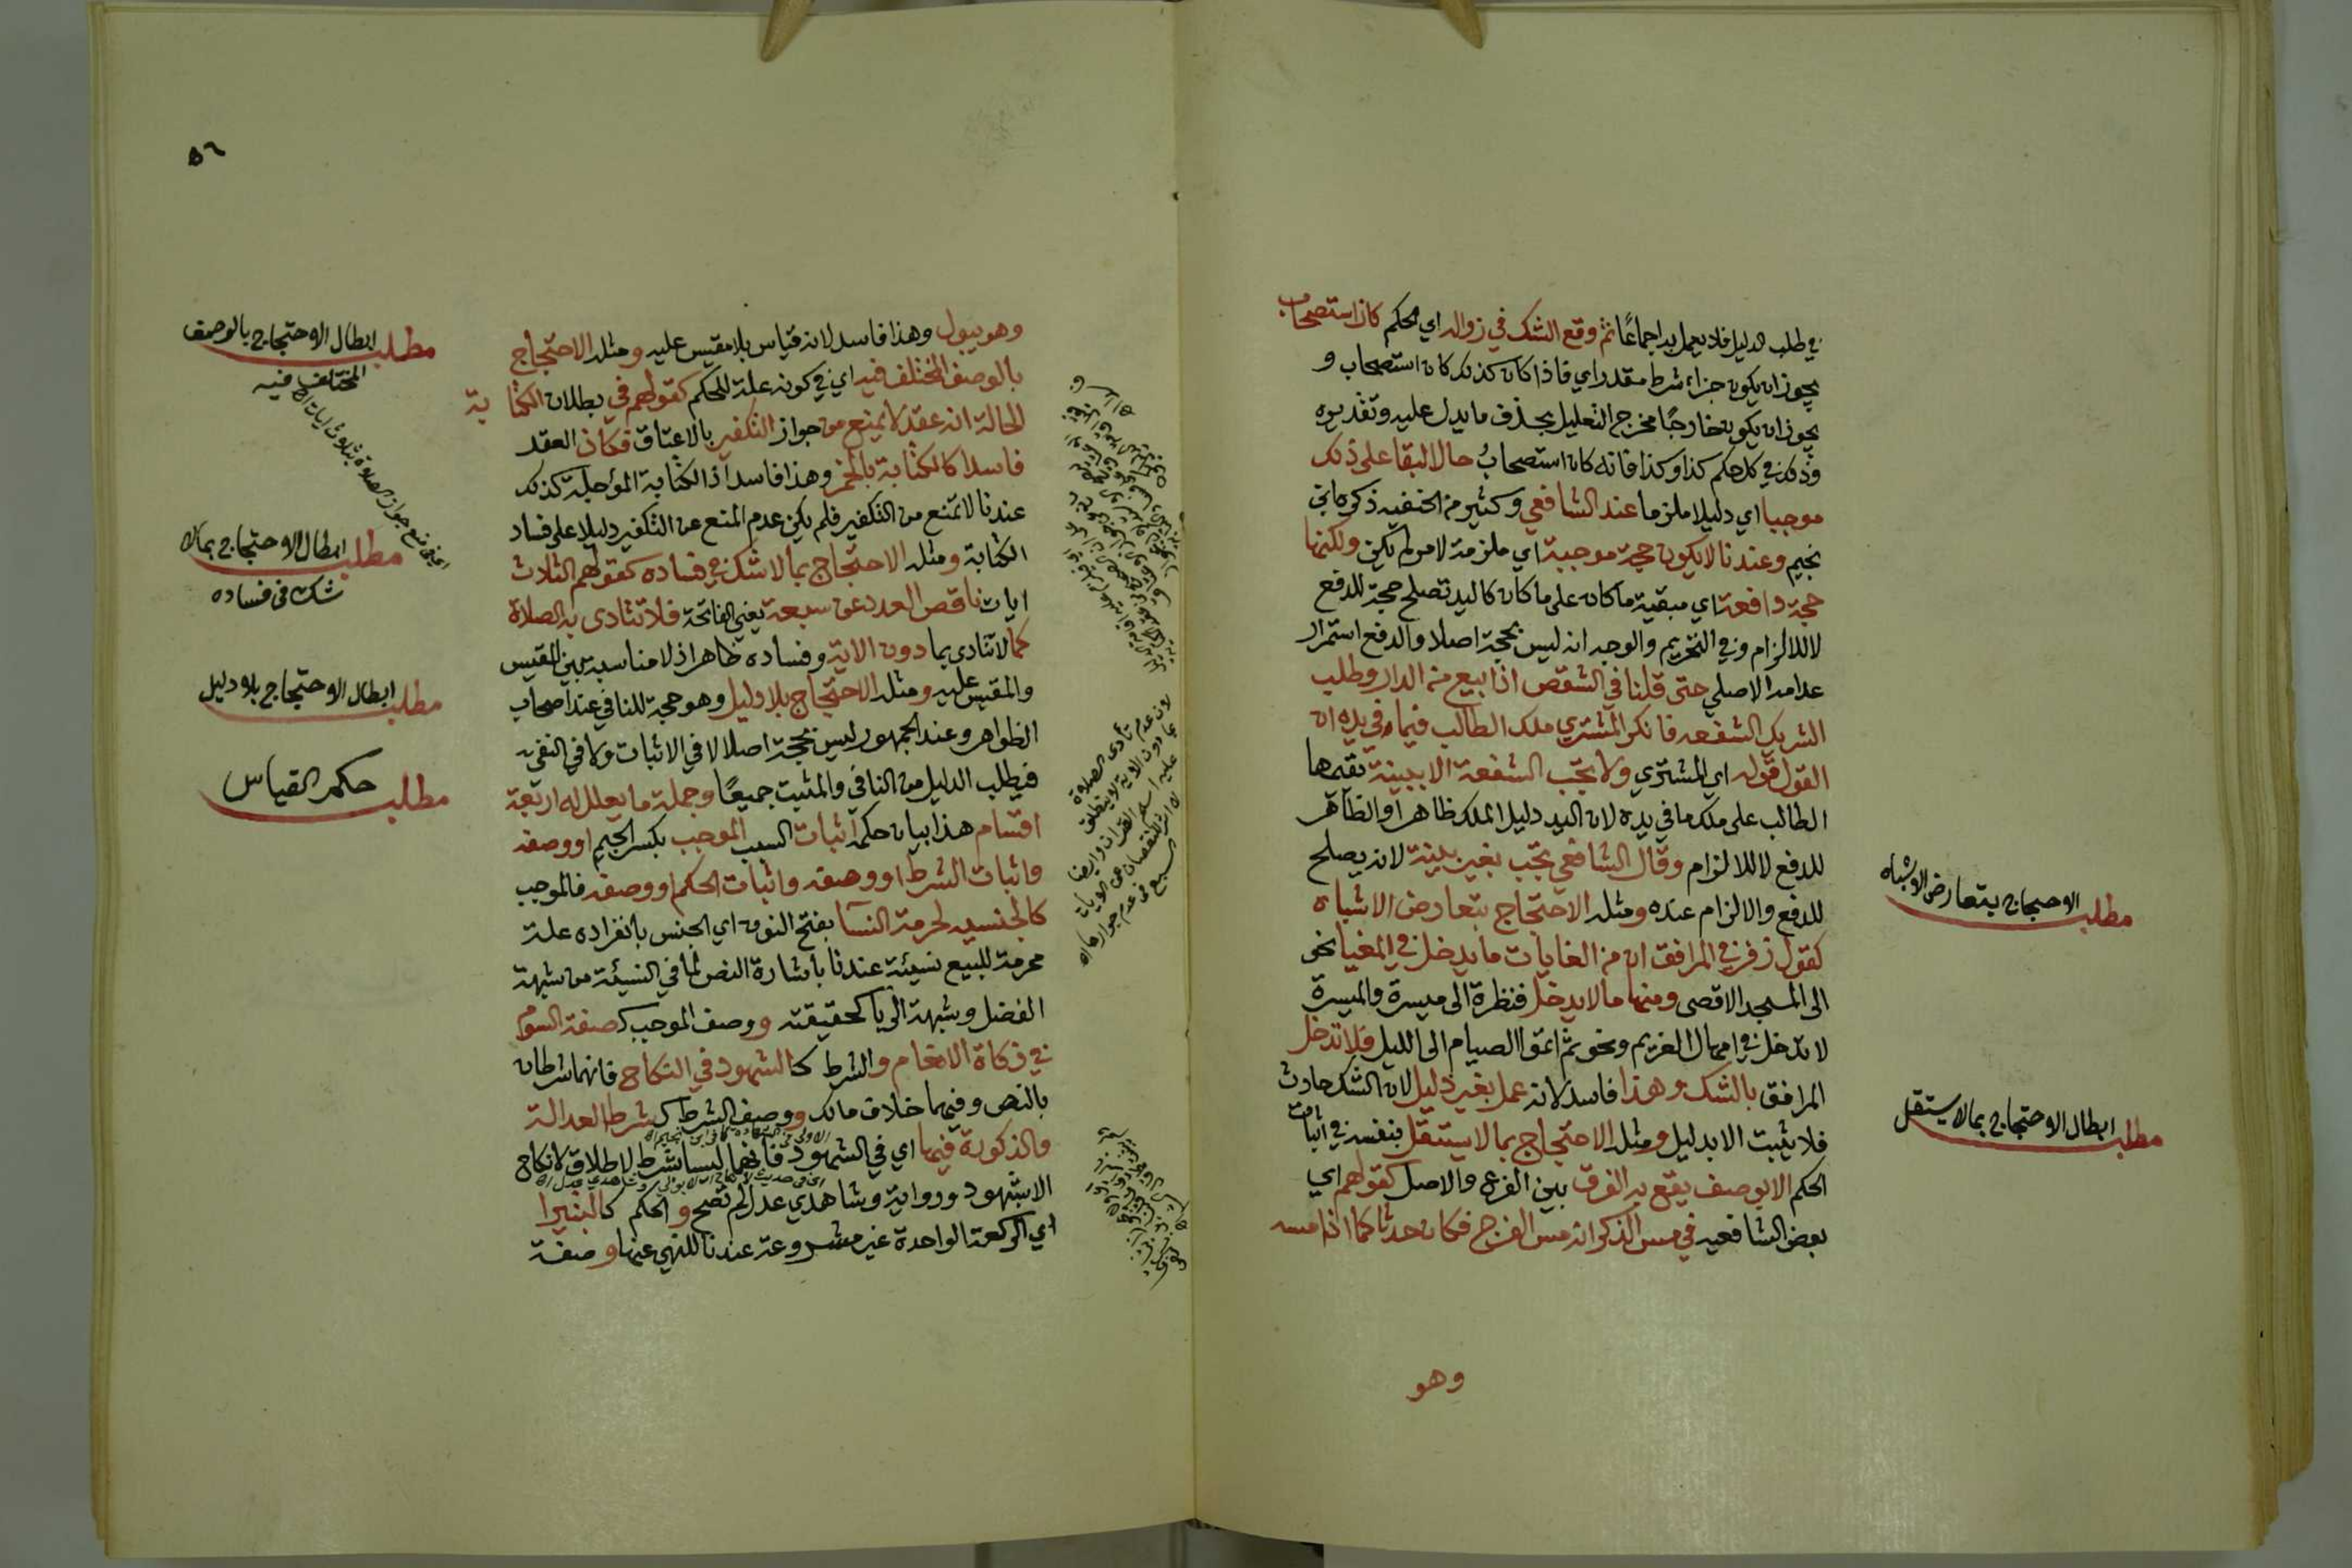 في طلب الدليل فلا يعمل به اجماعًا ثم وقع الشك في زواله اي الحكم كان استصحاب
يجوز ان يكون جزاء شرط مقدر اي فاذا كان كذلك كان استصحاب و
يجوز ان يكون خارجًا مخرج التعليل بحذف ما يدل عليه وتقديره
وذلك في كل حكم كذا وكذا فانه كان استصحابُ حال البقا على ذلك
موجبا اي دليلا ملزما عند الشافعي وكثير من الحنفيه ذكره ابن
نجيم وعندنا لا يكون حجة موجبة اي ملزمة لامر لم يكن ولكنها
حجة دافعة اي مبقية ما كان على ما كان كاليد تصلح حجة للدفع
لا للالزام وفي التحرير والوجه انه ليس بحجة اصلا والدفع استمرار
عدمه الاصلي حتى قلنا في الشقص اذا بيع من الدار وطلب
الشريك الشفعه فانكر المشتري ملك الطالب فيما في يده ان
القول قوله اي المشتري ولا تجب الشفعة الا ببينة يقيمها
الطالب على ملك ما في يده لان اليد دليل الملك ظاهرا والظاهر
للدفع لا للالزام وقال الشافعي تجب بغير بينة لانه يصلح
للدفع والالزام عنده ومثله الاحتجاج بتعارض الاشباه
كقول زفر في المرافق ان من الغايات ما يدخل في المغيا نحو
الى المسجد الاقصى ومنها ما لا يدخل فنظرة الى ميسرة والميسرة
لا تدخل في امهال الغريم ونحو ثم اتموا الصيام الى الليل فلا تدخل
المرافق بالشك وهذا فاسد لانه عمل بغير دليل لان الشك حادث
فلا يثبت الا بدليل ومثله الاحتجاج بما لا يستقل بنفسه في اثبات
الحكم الا بوصف يقع به الفرق بين الفرع والاصل كقولهم اي
بعض الشافعيه في مس الذكر انه مس الفرج فكان حدثا كما اذا مسه
وهو
مطلب الاحتجاج بتعارض الاشباه
مطلب ابطال الاحتجاج بما لا يستقل
٥٦
وهو يبول وهذا فاسد لانه قياس بلا مقيس عليه ومثله الاحتجاج
بالوصف المختلف فيه اي في كونه علة للحكم كقولهم في بطلان الكتابة
الحالة انه عقد لا يمنع من جواز التكفير بالاعتاق فكان العقد
فاسدا كالكتابة بالخمر وهذا فاسد اذ الكتابة المؤجلة كذلك
عندنا لا تمنع من التكفير فلم يكن عدم المنع من التكفير دليلا على فساد
الكتابة ومثله الاحتجاج بما لا شك في فساده كقولهم الثلاث
ايات ناقص العدد عن سبعة يعني الفاتحة فلا تتادى به الصلاة
كما لا تتادى بما دون الاية وفساده ظاهر اذ لا مناسبة بين المقيس
والمقيس عليه ومثله الاحتجاج بلا دليل وهو حجة للنافي عند اصحاب
الظواهر وعند الجمهور ليس بحجة اصلا لا في الاثبات ولا في النفي
فيطلب الدليل من النافي والمثبت جميعًا وجملة ما يعلل له اربعة
اقسام هذا بيان حكمه اثبات السبب الموجب بكسر الجيم او وصفه
واثبات الشرط او وصفه واثبات الحكم او وصفه فالموجب
كالجنسيه لحرمة النسآ بفتح النون اي الجنس بانفراده علة
محرمة للبيع نسيئة عندنا باشارة النص لما في النسيئة من شبهة
الفضل وشبهة الربا كحقيقته ووصف الموجب كصفة السوم
في زكاة الانعام والشرط كالشهود في النكاح فانهما شرطان
بالنص وفيهما خلاف مالك ووصف الشرط كشرط العدالة
والذكورة فيها اي في الشهود فانهما ليسا بشرط لاطلاق لا نكاح
الا بشهود ورواية وشاهدي عدل لم تصح والحكم كالبتيرا
اي الركعة الواحدة غير مشروعة عندنا للنهي عنها وصفة
مطلب ابطال الاحتجاج بالوصف
المختلف فيه
مطلب ابطال الاحتجاج بما لا
شك في فساده
مطلب ابطال الاحتجاج بلا دليل
مطلب حكم القياس